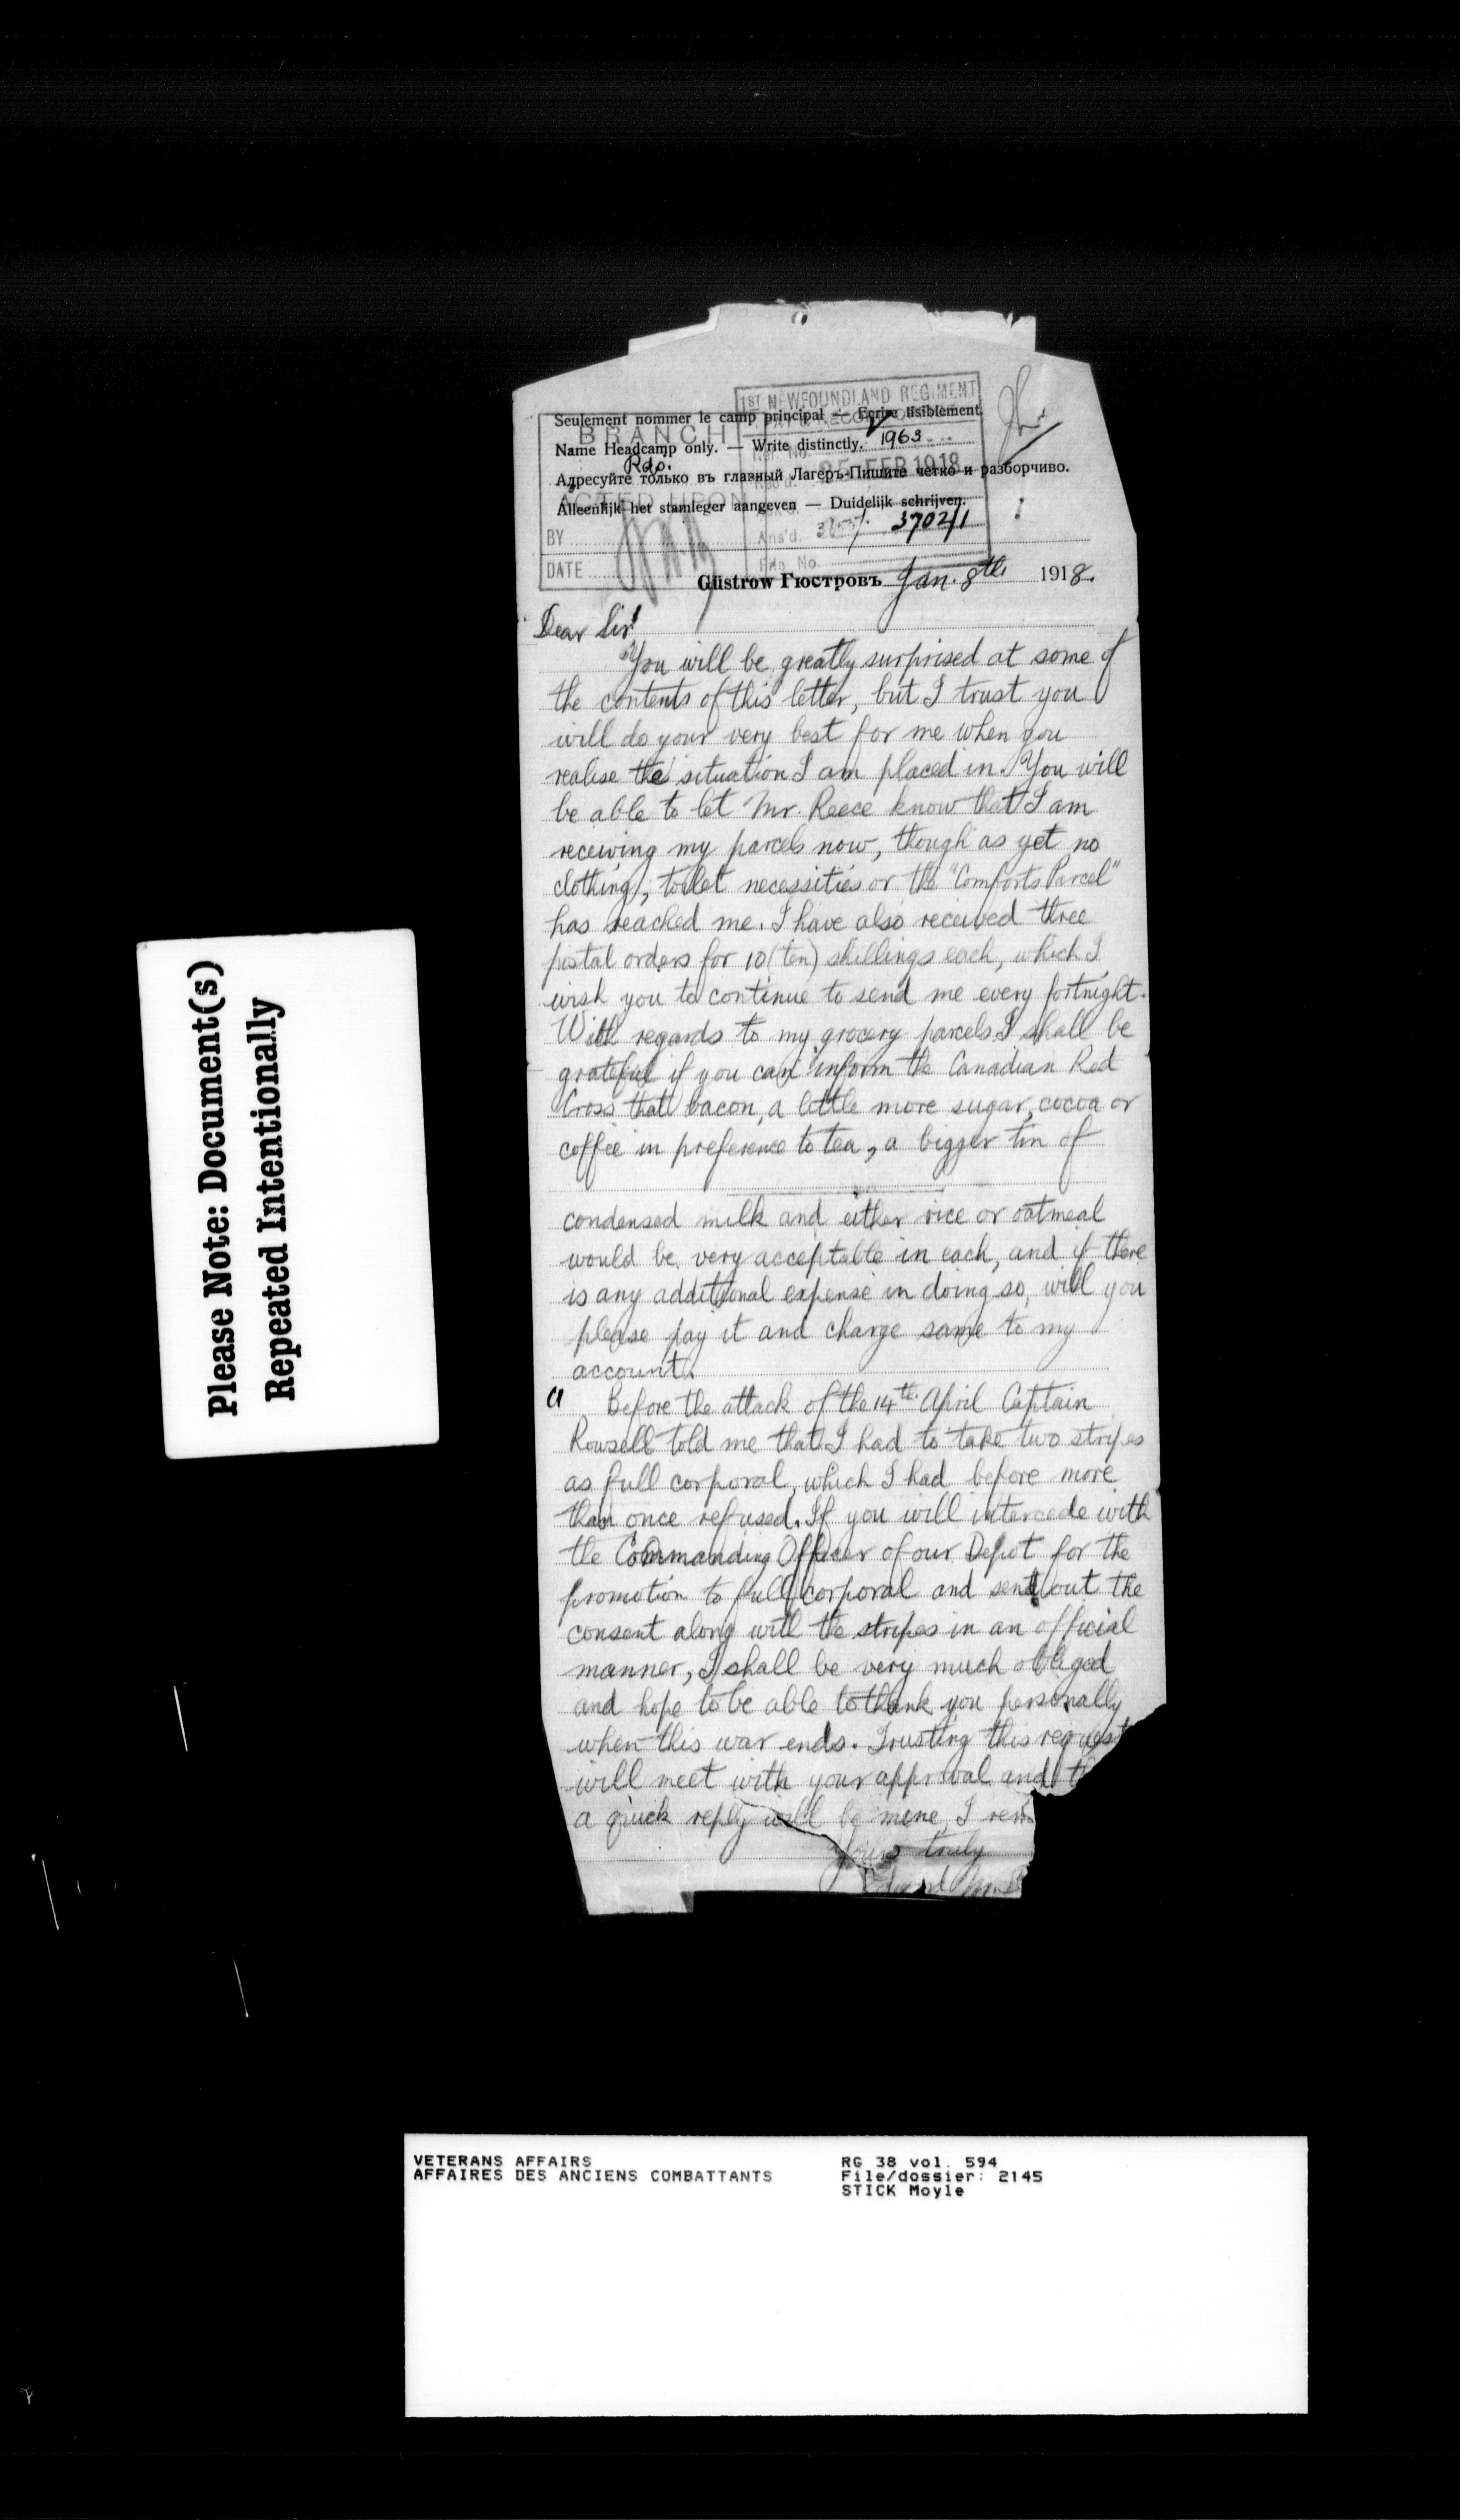 1ST NEWFOUNDLAND REGIMENT
Seulement nommer le camp principal — Ecrire lisiblement.
BRANCH
Name Headcamp only. — Write distinctly. 1963
25 FEB 1918
Адресуйте только въ главный Лагеръ-Пишите четко и разборчиво.
ACTED UPON
Alleenlijk het stamleger aangeven — Duidelijk schrijven.
BY
Ans'd. 3702/1
DATE
File No.
Güstrow Гюстровъ Jan. 8th. 1918.
Dear Sir
You will be greatly surprised at some of
the contents of this letter, but I trust you
will do your very best for me when you
realise the situation I am placed in. You will
be able to let Mr. Reece know that I am
receiving my parcels now, though as yet no
clothing, toilet necessities or the "Comforts Parcel"
has reached me. I have also received three
postal orders for 10 (ten) shillings each, which I
wish you to continue to send me every fortnight.
With regards to my grocery parcels I shall be
grateful if you can inform the Canadian Red
Cross that bacon, a little more sugar, cocoa or
coffee in preference to tea, a bigger tin of
condensed milk and either rice or oatmeal
would be very acceptable in each, and if there
is any additional expense in doing so, will you
please pay it and charge same to my
account.
a Before the attack of the 14th. April Captain
Rowsell told me that I had to take two stripes
as full corporal, which I had before more
than once refused. If you will intercede with
the Commanding Officer of our Depot for the
promotion to full corporal and send out the
consent along with the stripes in an official
manner, I shall be very much obliged
and hope to be able to thank you personally
when this war ends. Trusting this request
will meet with your approval and th
a quick reply will be mine, I rem
yours truly
Please Note: Document(s)
Repeated Intentionally
VETERANS AFFAIRS
AFFAIRES DES ANCIENS COMBATTANTS
RG 38 vol. 594
File/dossier: 2145
STICK Moyle